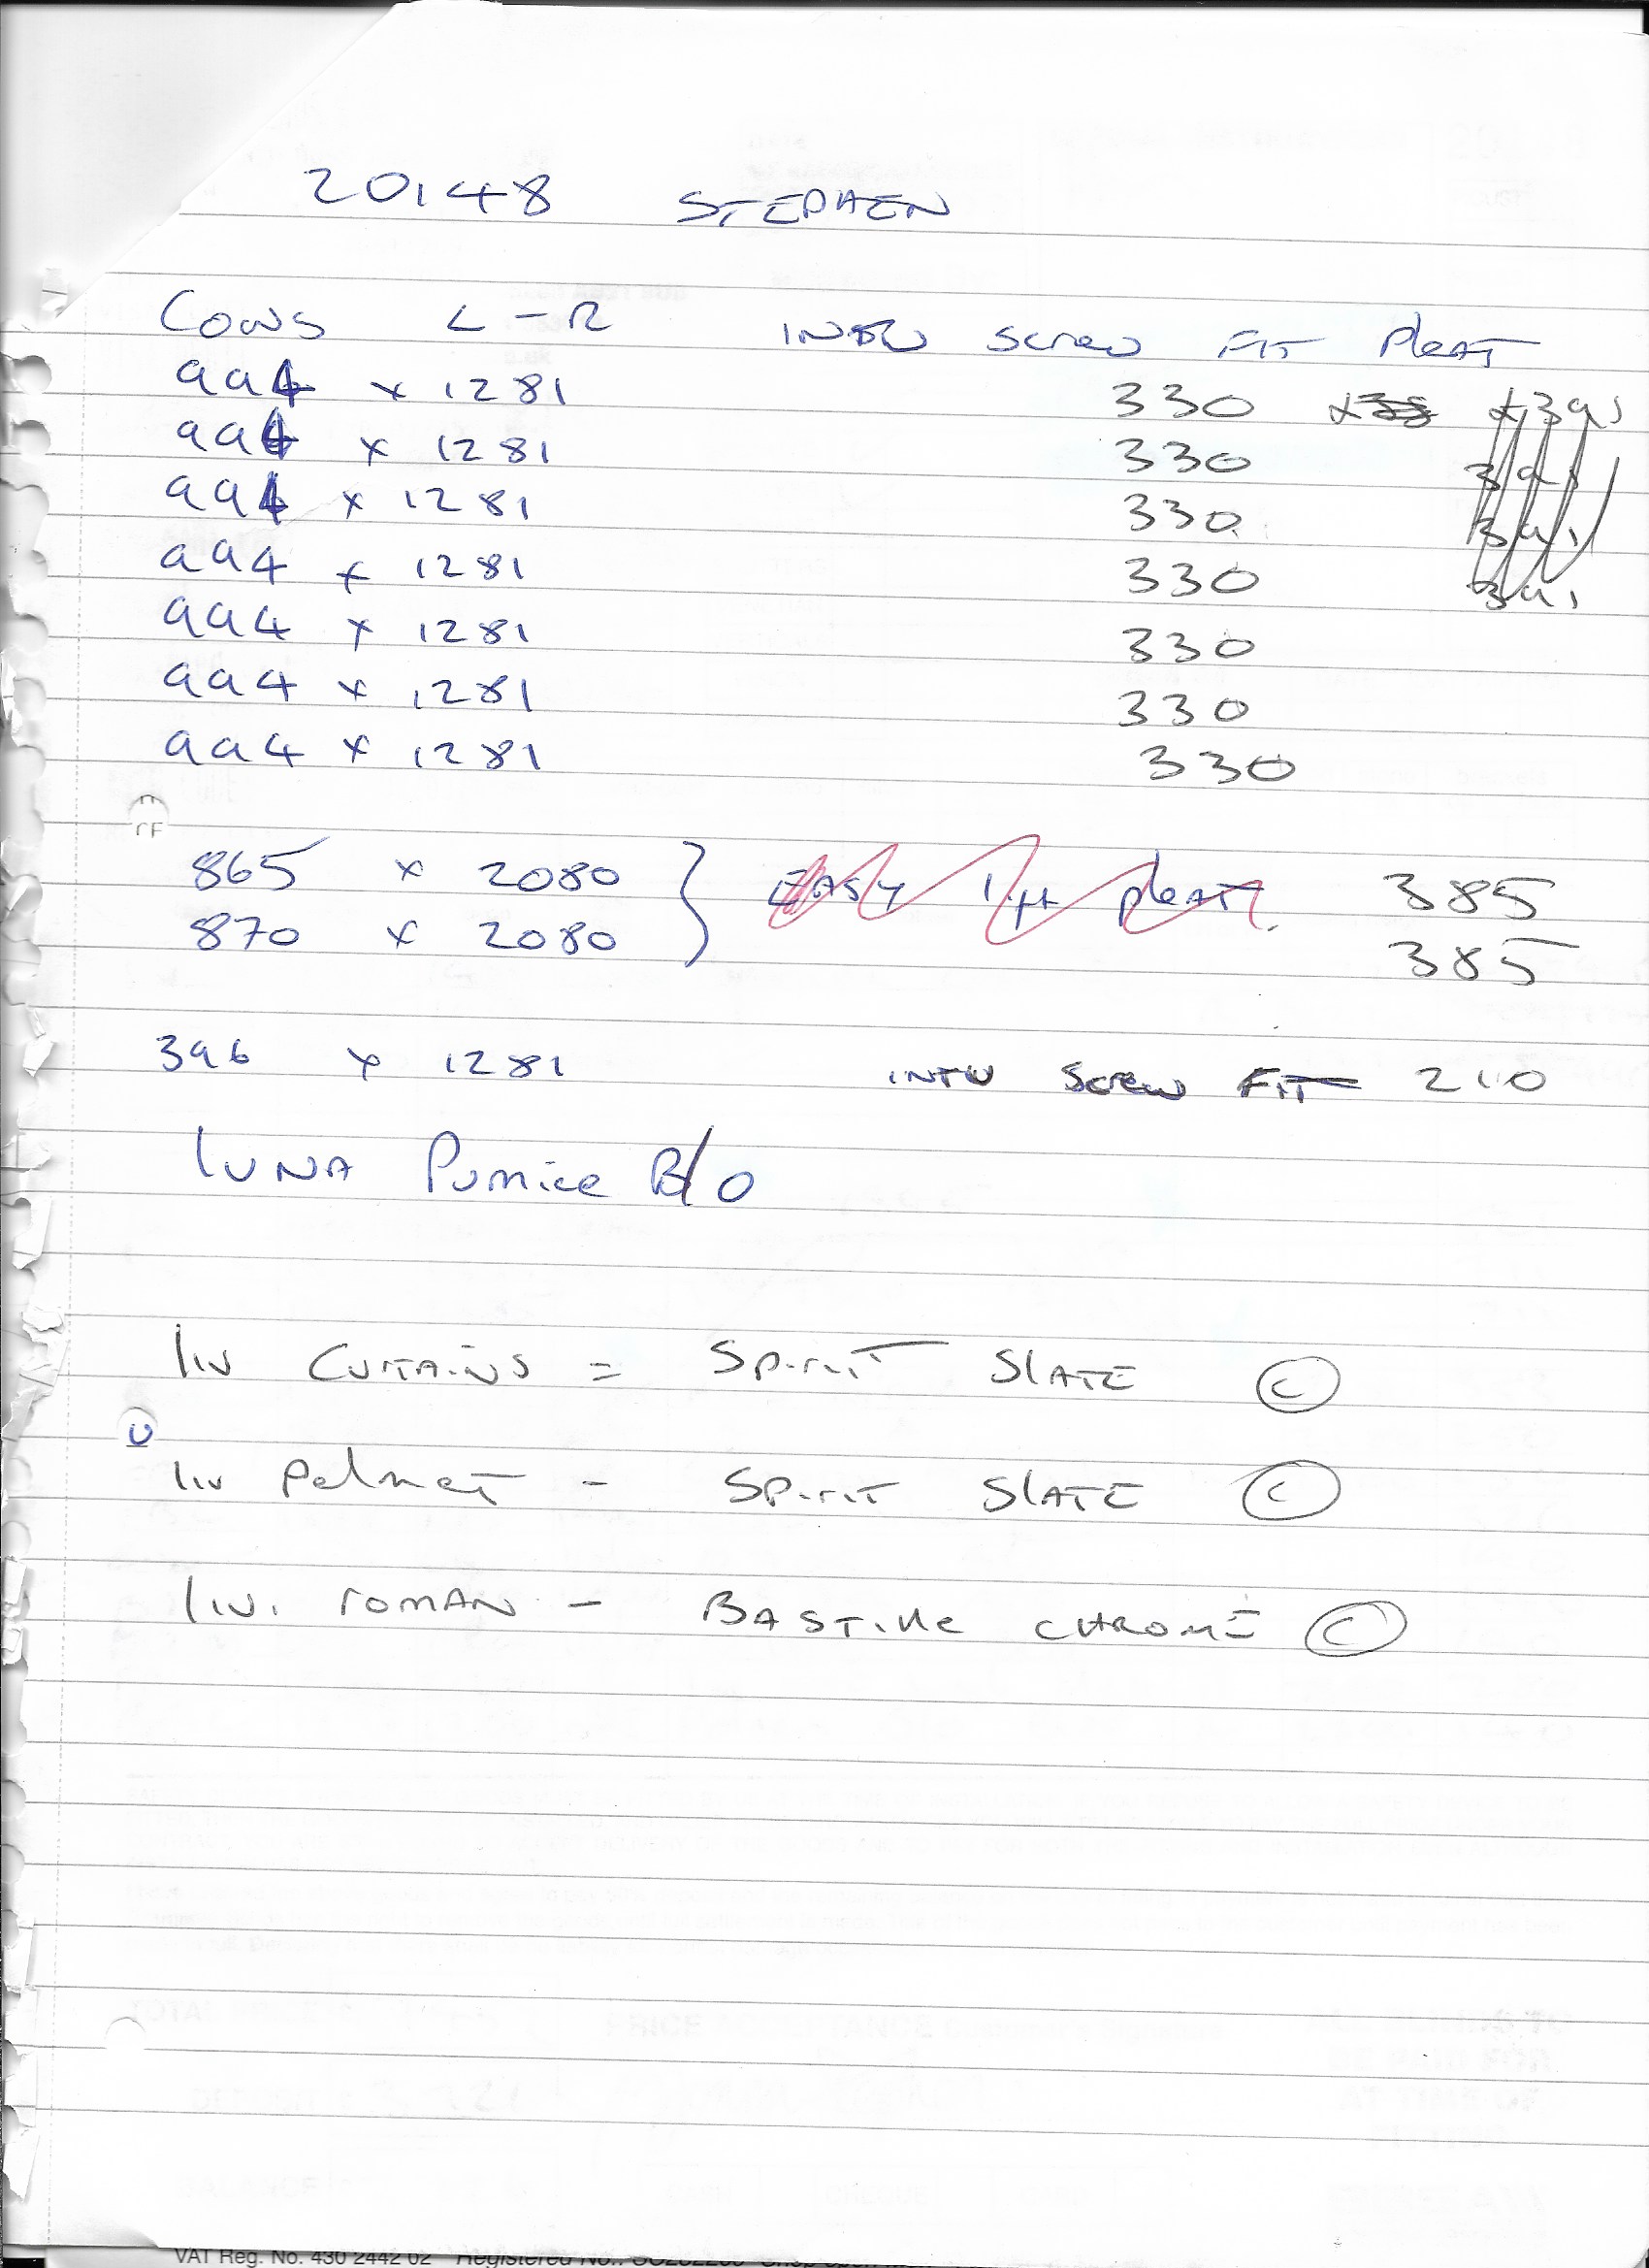 20148 STEPHEN
CONS L-R INTU Screw FIT PleAT
994 x 1281 330 x391
994 x 1281 330 391
994 x 1281 330 391
994 x 1281 330 391
994 x 1281 330
994 x 1281 330
994 x 1281 330
865 x 2080 } EASY lift pleAT. 385
870 x 2080 385
396 x 1281 INTU Screw FIT 210
lUNA Pumice B/O
liv CURTAiNS = SpiriT SlATE (C)
liv Pelmet - SpiriT SlATE (C)
liv. roman - BASTille CHROME (C)
VAT Reg. No. 430 2442 02